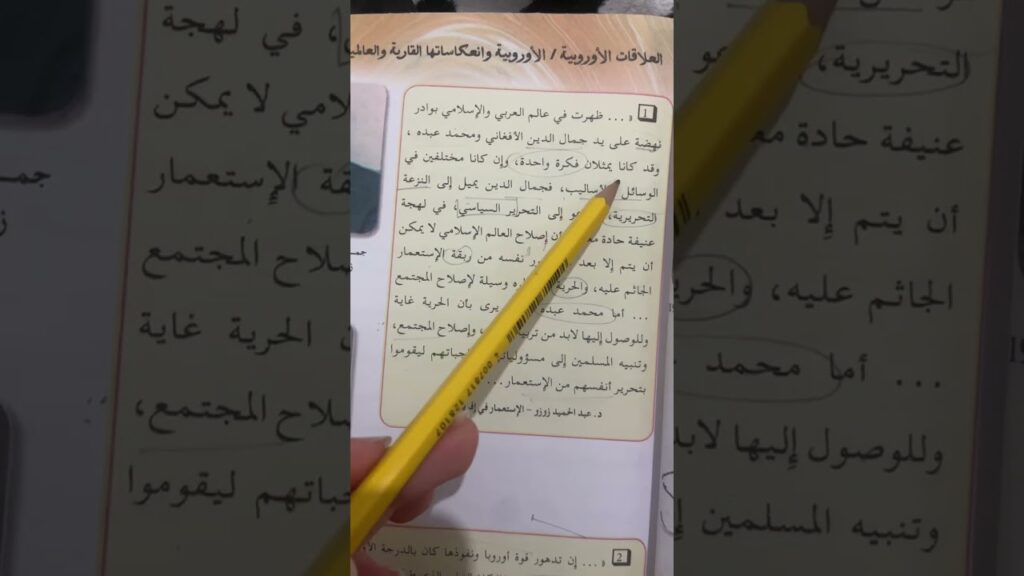 العلاقات الأوروبية / الأوروبية وانعكاساتها القارية والعالمي
1 « ... ظهرت في عالم العربي والإسلامي بوادر
نهضة على يد جمال الدين الأفغاني ومحمد عبده ،
وقد كانا يمثلان فكرة واحدة، وإن كانا مختلفين في
الوسائل فجمال الدين يميل إلى النزعة
التحريرية، إلى التحرير السياسي، في لهجة
عنيفة حادة أن إصلاح العالم الإسلامي لا يمكن
أن يتم إلا بعد نفسه من ربقة الإستعمار
الجاثم عليه، والحرية وسيلة لإصلاح المجتمع
... أما محمد عبده يرى بأن الحرية غاية
وللوصول إليها لابد من وإصلاح المجتمع،
وتنبيه المسلمين إلى ليقوموا
بتحرير أنفسهم من الإستعمار ...
د. عبد الحميد زوزو - الإستعمار في
2 « ... إن تدهور قوة أوروبا ونفوذها كان بالدرجة